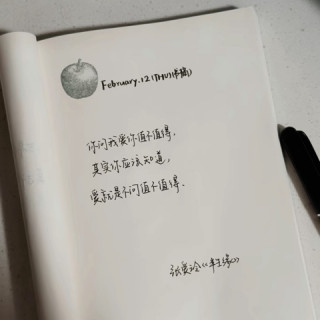 February.12(THU)
你问我爱你值不值得,
其实你应该知道,
爱就是不问值不值得.
张爱玲《半生缘》